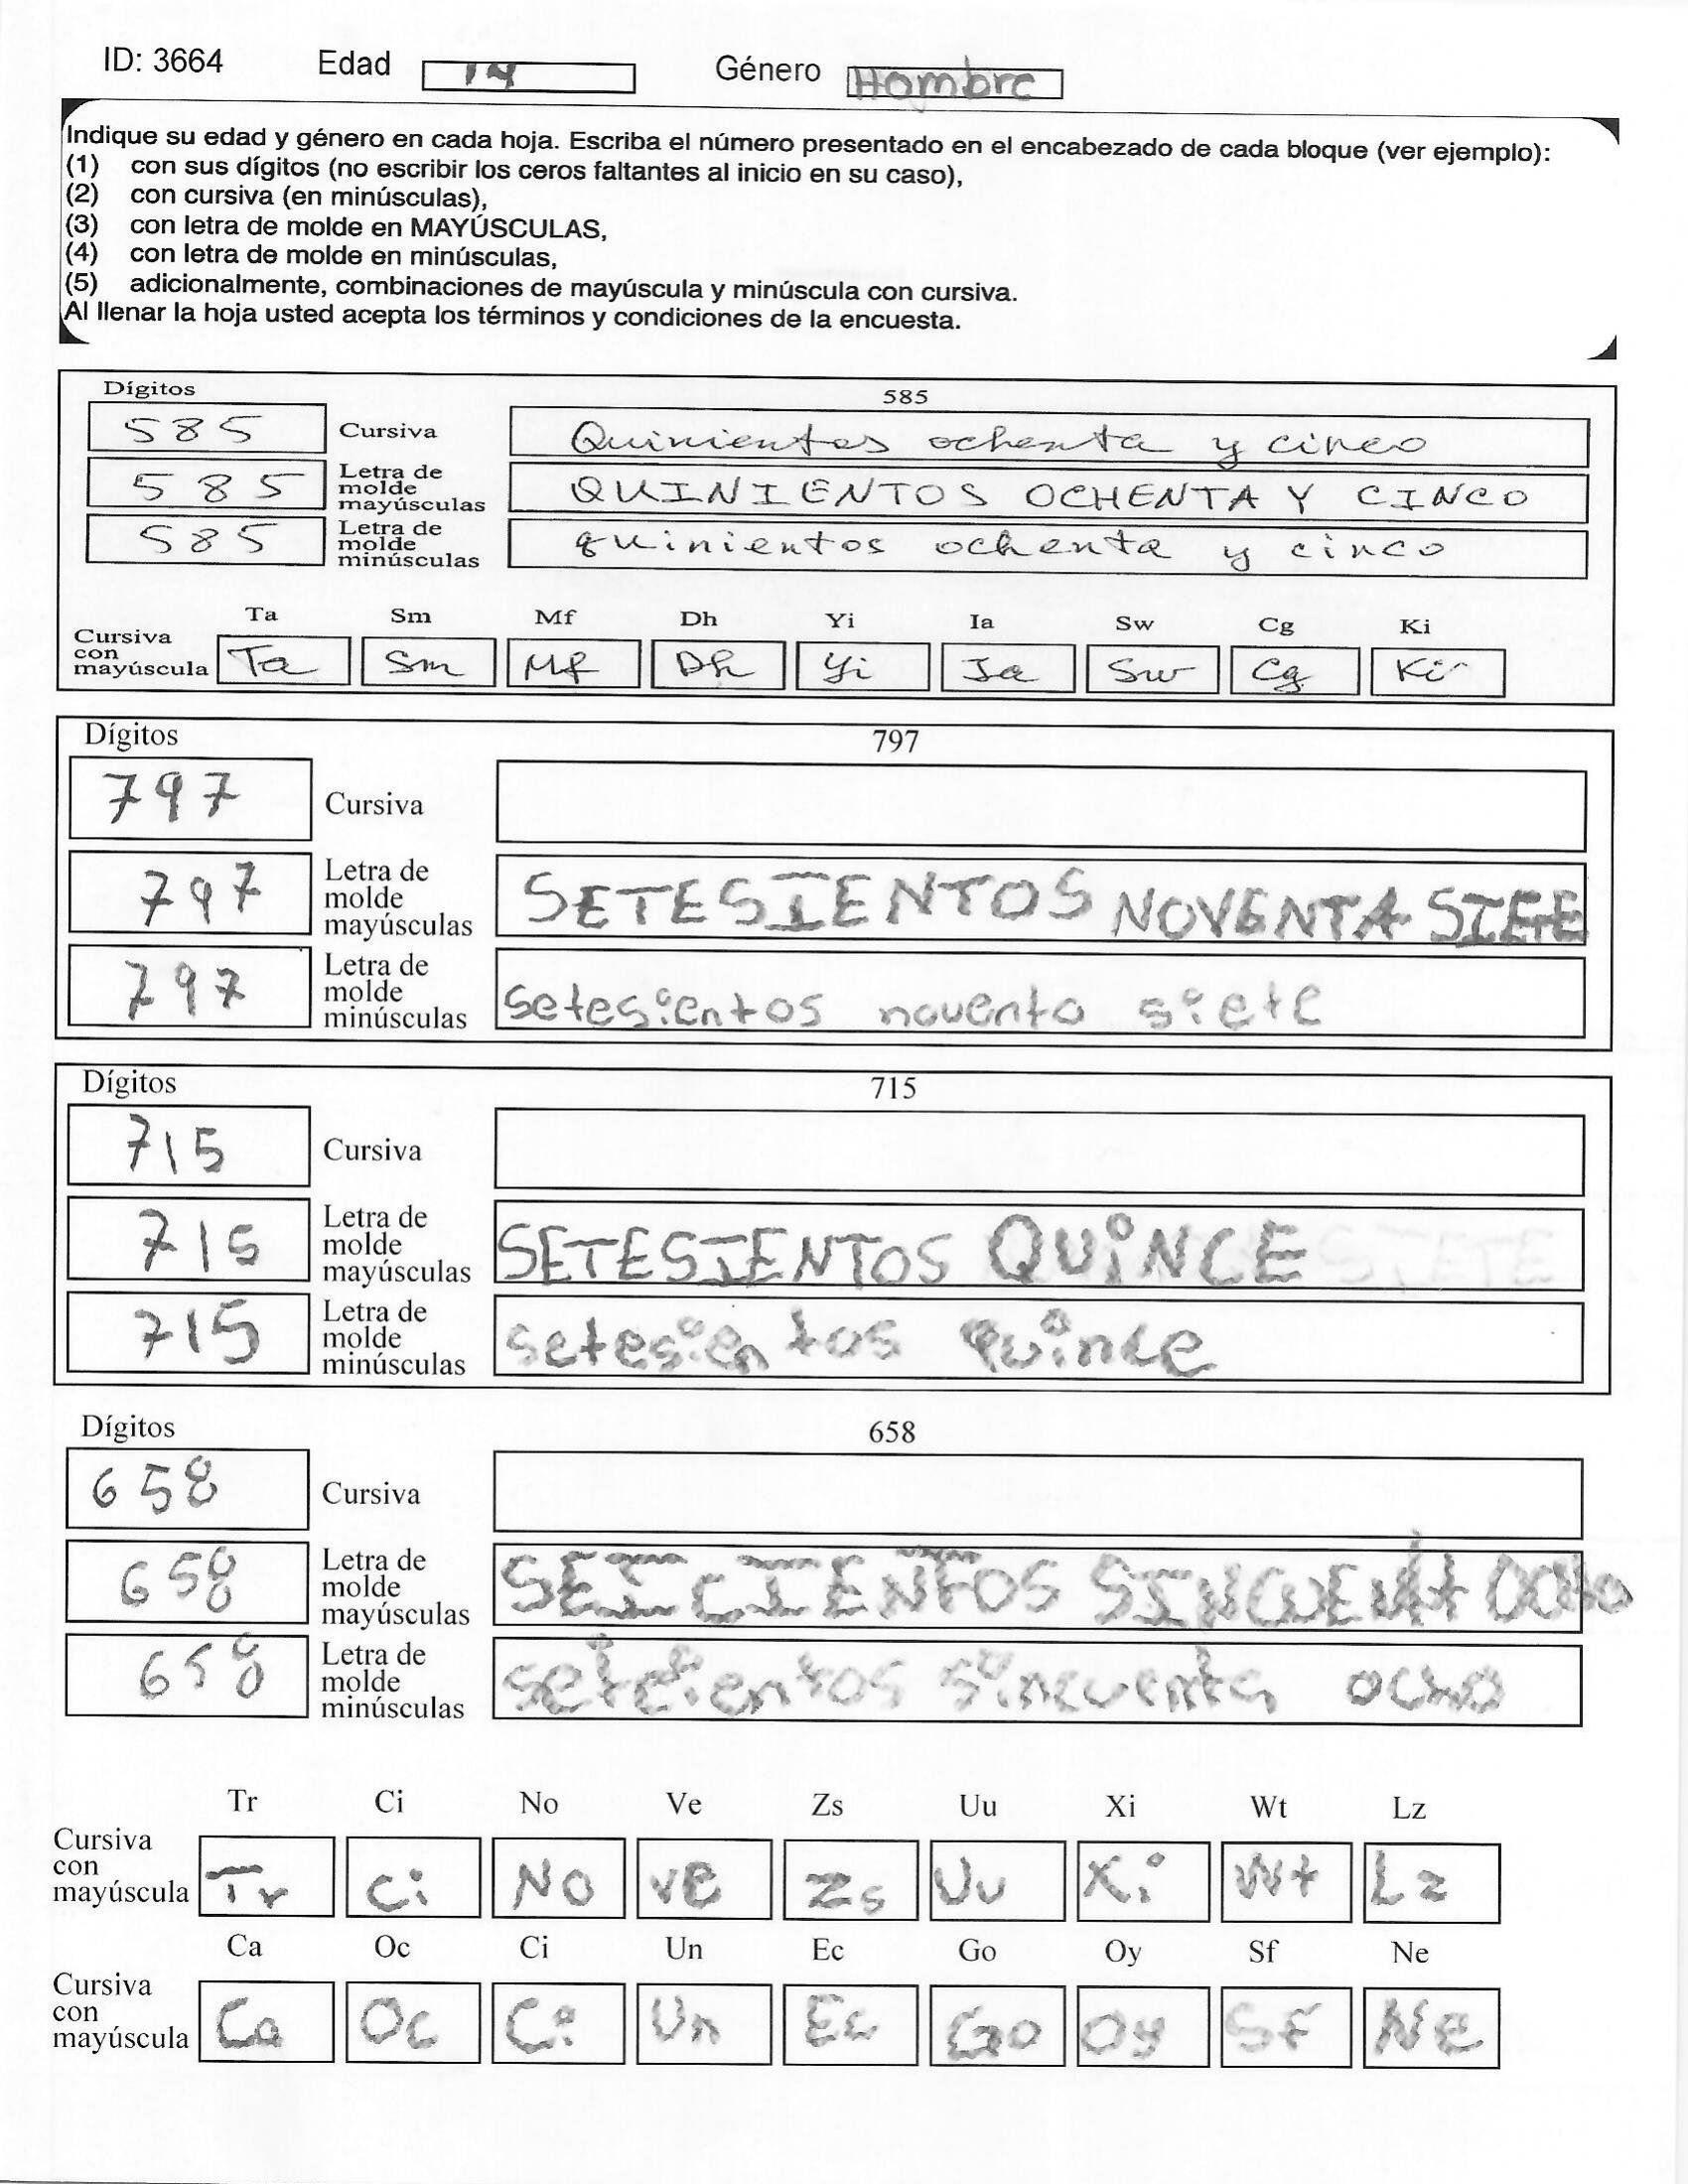 ID: 3664 Edad 14 Género Hombre
Indique su edad y género en cada hoja. Escriba el número presentado en el encabezado de cada bloque (ver ejemplo):
(1) con sus dígitos (no escribir los ceros faltantes al inicio en su caso),
(2) con cursiva (en minúsculas),
(3) con letra de molde en MAYÚSCULAS,
(4) con letra de molde en minúsculas,
(5) adicionalmente, combinaciones de mayúscula y minúscula con cursiva.
Al llenar la hoja usted acepta los términos y condiciones de la encuesta.
Dígitos 585
585 Cursiva Quinientos ochenta y cinco
585 Letra de molde mayúsculas QUINIENTOS OCHENTA Y CINCO
585 Letra de molde minúsculas quinientos ochenta y cinco
Ta Sm Mf Dh Yi Ia Sw Cg Ki
Cursiva con mayúscula Ta Sm Mf Dh Yi Ia Sw Cg Ki
Dígitos 797
797 Cursiva
797 Letra de molde mayúsculas SETESIENTOS NOVENTA
797 Letra de molde minúsculas setesientos noventa siete
Dígitos 715
715 Cursiva
715 Letra de molde mayúsculas SETESIENTOS QUiNCE SIETE
715 Letra de molde minúsculas setesientos quince
Dígitos 658
658 Cursiva
658 Letra de molde mayúsculas SEICIENTOS
658 Letra de molde minúsculas ocho
Tr Ci No Ve Zs Uu Xi Wt Lz
Cursiva con mayúscula Tr Ci No ve Zs Uu Xi Wt Lz
Ca Oc Ci Un Ec Go Oy Sf Ne
Cursiva con mayúscula Ca Oc Ci Un Ec Go Oy Sf Ne